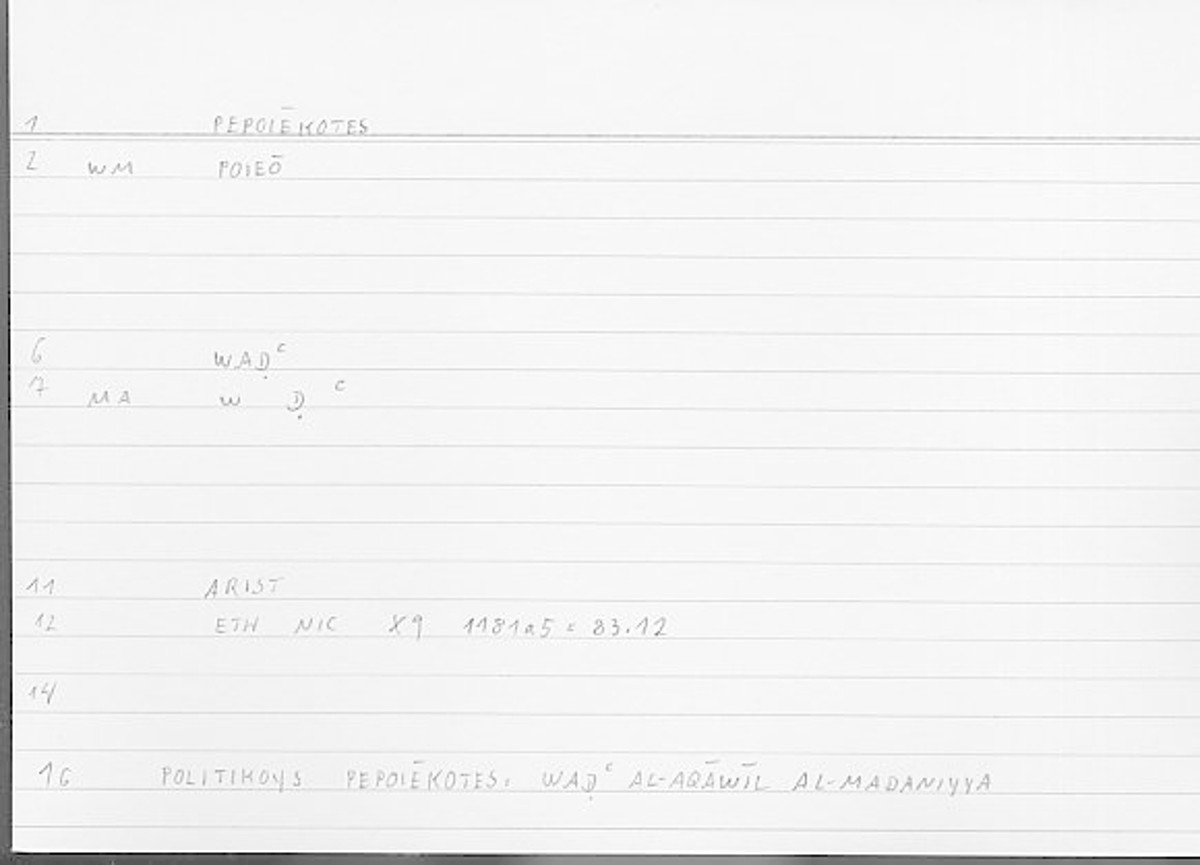 1 PEPOIĒKOTES
2 WM POIEŌ
6 WAḌ ͨ
7 MA W Ḍ ͨ
11 ARIST
12 ETH NIC X9 1181a5 = 83.12
14
16 POLITIKOYS PEPOIĒKOTES: WAḌ ͨ AL-AQĀWĪL AL-MADANIYYA